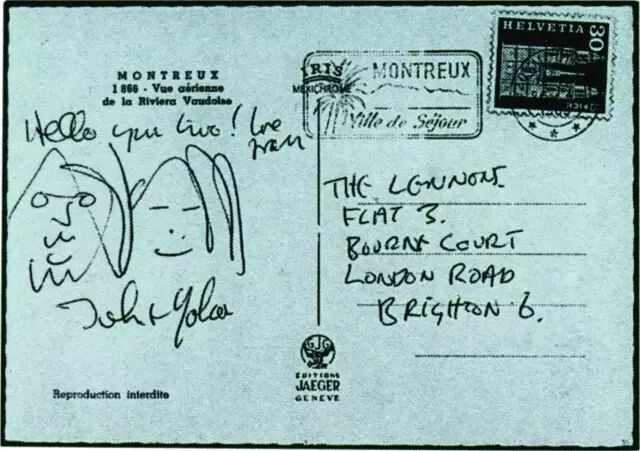 MONTREUX
1 866 - Vue aérienne
de la Riviera Vaudoise
Hello you two! love
from
John + Yoko
Reproduction interdite
IRIS
MEXICHROME
EDITIONS
JAEGER
GENEVE
MONTREUX
Ville de Séjour
HELVETIA
30
THE LENNONS.
FLAT 3.
BOURNE COURT
LONDON ROAD
BRIGHTON 6.